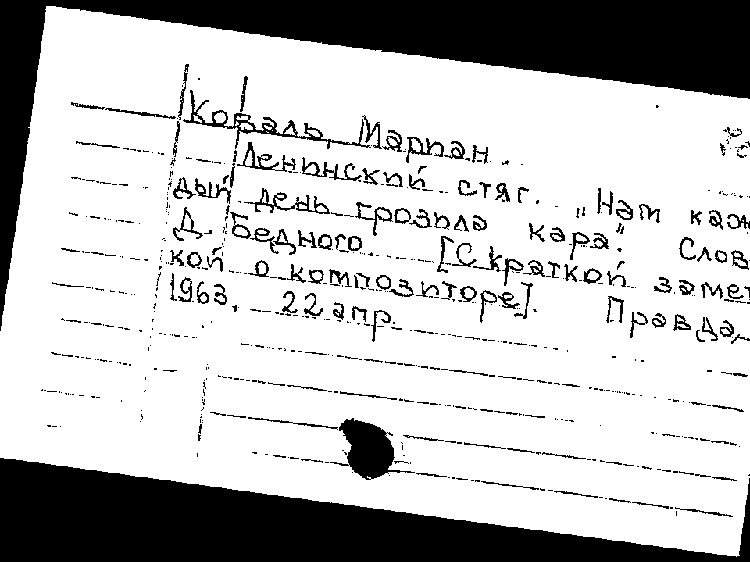 Коваль, Мариан.
Ленинский стяг. "Нам каж
дый день грозила кара". Слов
Д. Бедного. [С краткой замет
кой о композиторе]. Правда,
1963, 22 апр.